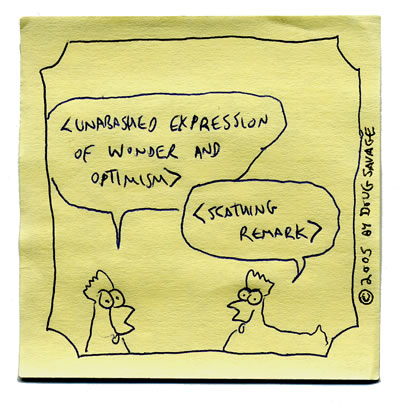 <UNABASHED EXPRESSION
OF WONDER AND
OPTIMISM>
<SCATHING
REMARK>
© 2005 BY DOUG SAVAGE